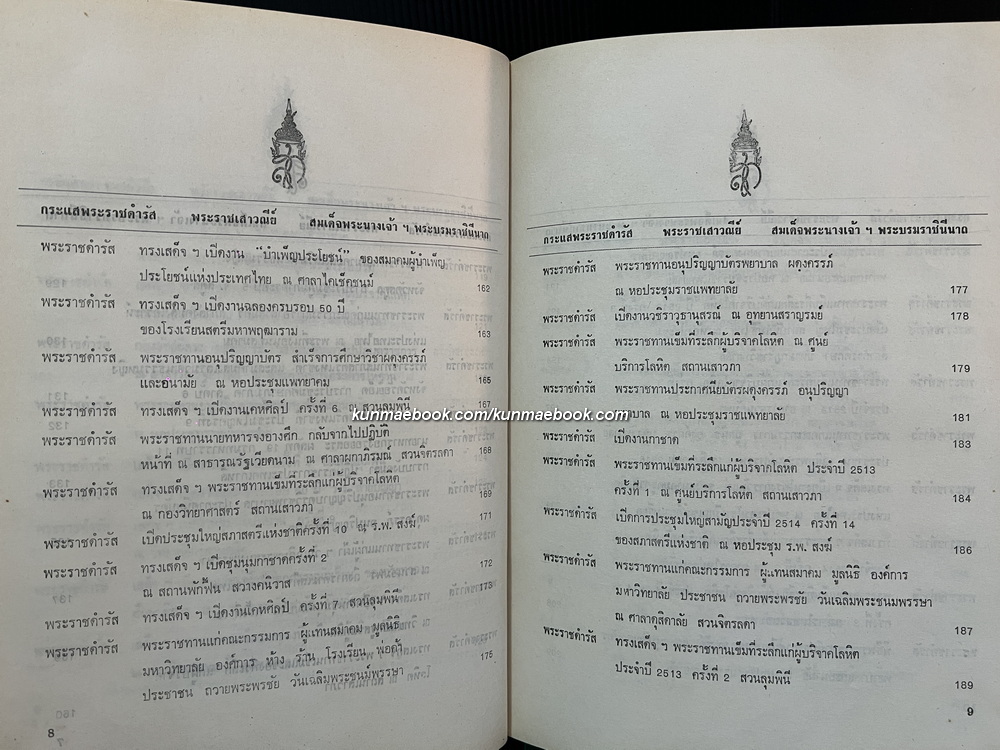 กระแสพระราชดำรัส พระราชเสาวณีย์ สมเด็จพระนางเจ้า ฯ พระบรมราชินีนาถ
พระราชดำรัส ทรงเสด็จ ฯ เปิดงาน “บำเพ็ญประโยชน์” ของสมาคมผู้บำเพ็ญ
ประโยชน์แห่งประเทศไทย ณ ศาลาไคเช็คชนม์ 162
พระราชดำรัส ทรงเสด็จ ฯ เปิดงานฉลองครบรอบ 50 ปี
ของโรงเรียนสตรีมหาพฤฒาราม 163
พระราชดำรัส พระราชทานอนุปริญญาบัตร สำเร็จการศึกษาวิชาผดุงครรภ์
และอนามัย ณ หอประชุมแพทยาคม 165
พระราชดำรัส ทรงเสด็จ ฯ เปิดงานเคหศิลป์ ครั้งที่ 6 ณ สวนลุมพินี 167
พระราชดำรัส พระราชทานนายทหารจงอางศึก กลับจากไปปฏิบัติ
หน้าที่ ณ สาธารณรัฐเวียดนาม ณ ศาลาผกาภิรมณ์ สวนจิตรลดา 168
พระราชดำรัส ทรงเสด็จ ฯ พระราชทานเข็มที่ระลึกแก่ผู้บริจาคโลหิต
ณ กองวิทยาศาสตร์ สถานเสาวภา 169
พระราชดำรัส เปิดประชุมใหญ่สภาสตรีแห่งชาติครั้งที่ 10 ณ ร.พ. สงฆ์ 171
พระราชดำรัส ทรงเสด็จ ฯ เปิดชุมนุมกาชาดครั้งที่ 2
ณ สถานพักฟื้น สวางคนิวาส 172
พระราชดำรัส ทรงเสด็จ ฯ เปิดงานเคหศิลป์ ครั้งที่ 7 สวนลุมพินี 173
พระราชดำรัส พระราชทานแก่คณะกรรมการ ผู้แทนสมาคม มูลนิธิ
มหาวิทยาลัย องค์การ ห้าง ร้าน โรงเรียน พ่อค้า
ประชาชน ถวายพระพรชัย วันเฉลิมพระชนม์พรรษา 175
8
kunmaebook.com/kunmaebook.com
กระแสพระราชดำรัส พระราชเสาวณีย์ สมเด็จพระนางเจ้า ฯ พระบรมราชินีนาถ
พระราชดำรัส พระราชทานอนุปริญญาบัตรพยาบาล ผดุงครรภ์
ณ หอประชุมราชแพทยาลัย 177
พระราชดำรัส เปิดงานวชิราวุธานุสรณ์ ณ อุทยานสราญรมย์ 178
พระราชดำรัส พระราชทานเข็มที่ระลึกผู้บริจาคโลหิต ณ ศูนย์
บริการโลหิต สถานเสาวภา 179
พระราชดำรัส พระราชทานประกาศนียบัตรผดุงครรภ์ อนุปริญญา
พยาบาล ณ หอประชุมราชแพทยาลัย 181
พระราชดำรัส เปิดงานกาชาด 183
พระราชดำรัส พระราชทานเข็มที่ระลึกแก่ผู้บริจาคโลหิต ประจำปี 2513
ครั้งที่ 1 ณ ศูนย์บริการโลหิต สถานเสาวภา 184
พระราชดำรัส เปิดการประชุมใหญ่สามัญประจำปี 2514 ครั้งที่ 14
ของสภาสตรีแห่งชาติ ณ หอประชุม ร.พ. สงฆ์ 186
พระราชดำรัส พระราชทานแก่คณะกรรมการ ผู้แทนสมาคม มูลนิธิ องค์การ
มหาวิทยาลัย ประชาชน ถวายพระพรชัย วันเฉลิมพระชนมพรรษา
ณ ศาลาดุสิดาลัย สวนจิตรลดา 187
พระราชดำรัส ทรงเสด็จ ฯ พระราชทานเข็มที่ระลึกแก่ผู้บริจาคโลหิต
ประจำปี 2513 ครั้งที่ 2 สวนลุมพินี 189
9